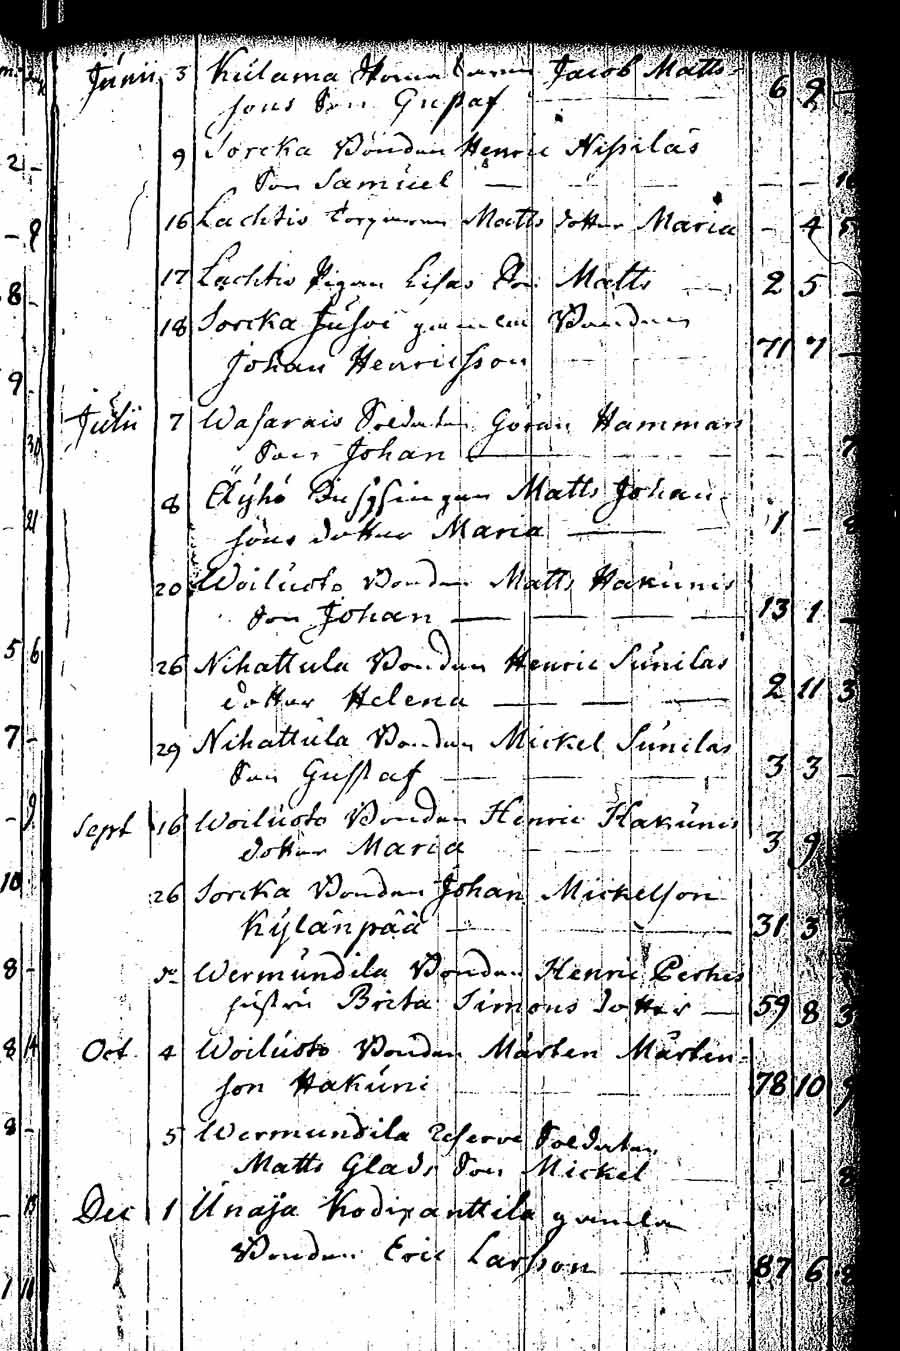 Junii 3 Kulama Jacob Matts-
sons Son Gustaf — 6 9 —
9 Sorcka Bonden Henric Nissilas
Son Samuel — — —
16 Lachtis Matts dotter Maria - 4
17 Lachtis Pigan Lisas Son Matts — 2 5 —
18 Sorcka Jusoi gamla Bonden
Johan Henricsson 71 7 —
Julii 7 Wasarais Soldaten Göran Hammars
Son Johan — — —
8 Äyhö Matts Johan-
sons dotter Maria — 1 —
20 Woiluoto Bonden Matts Hakunis
Son Johan — 13 1 —
26 Nihattula Bonden Henric Sunilas
dotter Helena — 2 11 3
29 Nihattula Bonden Mickel Sunilas
Son Gustaf — 3 3 —
Sept 16 Woiluoto Bonden Henric Hakunis
dotter Maria — 3 9
26 Sorcka Bonden Johan Mickelson
Kylänpää — 31 3
Wermundila Bonden Henric Perhes
hustru Brita Simons dotter — 59 8 3
Oct 4 Woiluoto Bonden Mårten Mårten-
son Hakuni 78 10
5 Wermundila Reserve Soldaten
Matts Glads Son Mickel
Dec 1 Unaja Kodixanttila gamla
Bonden Eric Larsson — 87 6